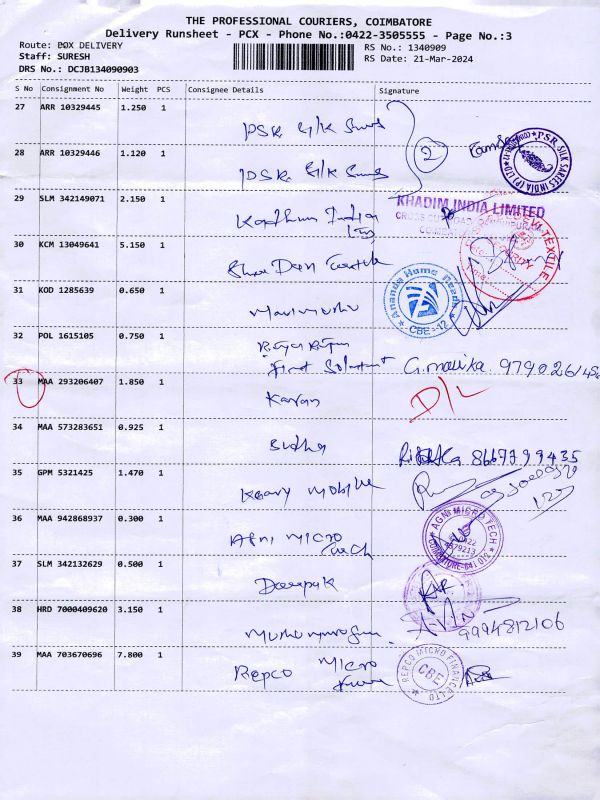 THE PROFESSIONAL COURIERS, COIMBATORE
Delivery Runsheet - PCX - Phone No.:0422-3505555 - Page No.:3
Route: BOX DELIVERY RS No.: 1340909
Staff: SURESH RS Date: 21-Mar-2024
DRS No.: DCJB134090903
S No Consignment No Weight PCS Consignee Details Signature
27 ARR 10329445 1.250 1
PSR Silk Sarees 2
PSR SILK SAREES INDIA (P) LTD
28 ARR 10329446 1.120 1
PSR Silk Sarees
29 SLM 342149071 2.150 1
KHADIM INDIA LIMITED
Khadim India
30 KCM 13049641 5.150 1
Shree Devi Textile
TEXTILE
SECURITY
31 KOD 1285639 0.650 1
Ananda Home Needs
CBE-12
32 POL 1615105 0.750 1
First Solution G.mallika 979026
33 MAA 293206407 1.850 1
Karan D/L
34 MAA 573283651 0.925 1
Sudha 8667399435
35 GPM 5321425 1.470 1
Mobile
36 MAA 942868937 0.300 1
Agni Micro Tech
AGNI MICRO TECH
COIMBATORE-641 012
37 SLM 342132629 0.500 1
Deepak
38 HRD 7000409620 3.150 1
9994812106
39 MAA 703670696 7.800 1
Repco Micro
REPCO MICRO FINANCE LTD
CBE